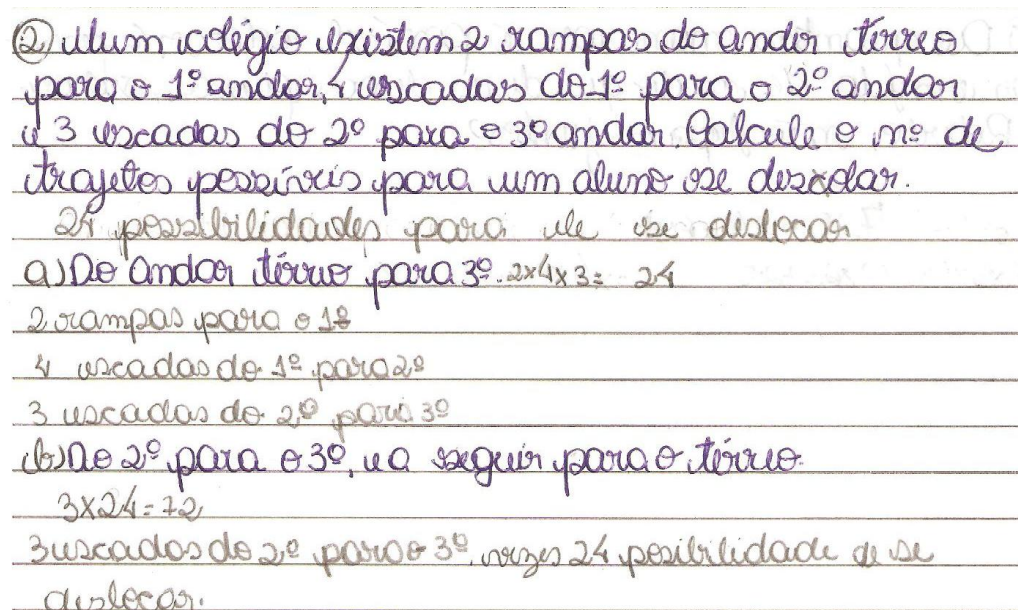 ② Num colégio existem 2 rampas do andar térreo
para o 1º andar, 4 escadas do 1º para o 2º andar
e 3 escadas do 2º para o 3º andar. Calcule o nº de
trajetos possíveis para um aluno se deslocar.
24 possibilidades para ele se deslocar
a) Do Andar térreo para 3º. 2x4x3= 24
2 rampas para o 1º
4 escadas do 1º para 2º
3 escadas do 2º para 3º
b) Do 2º para o 3º, e a seguir para o térreo.
3x24=72
3 escadas do 2º para o 3º, vezes 24 posibilidade de se
deslocar.